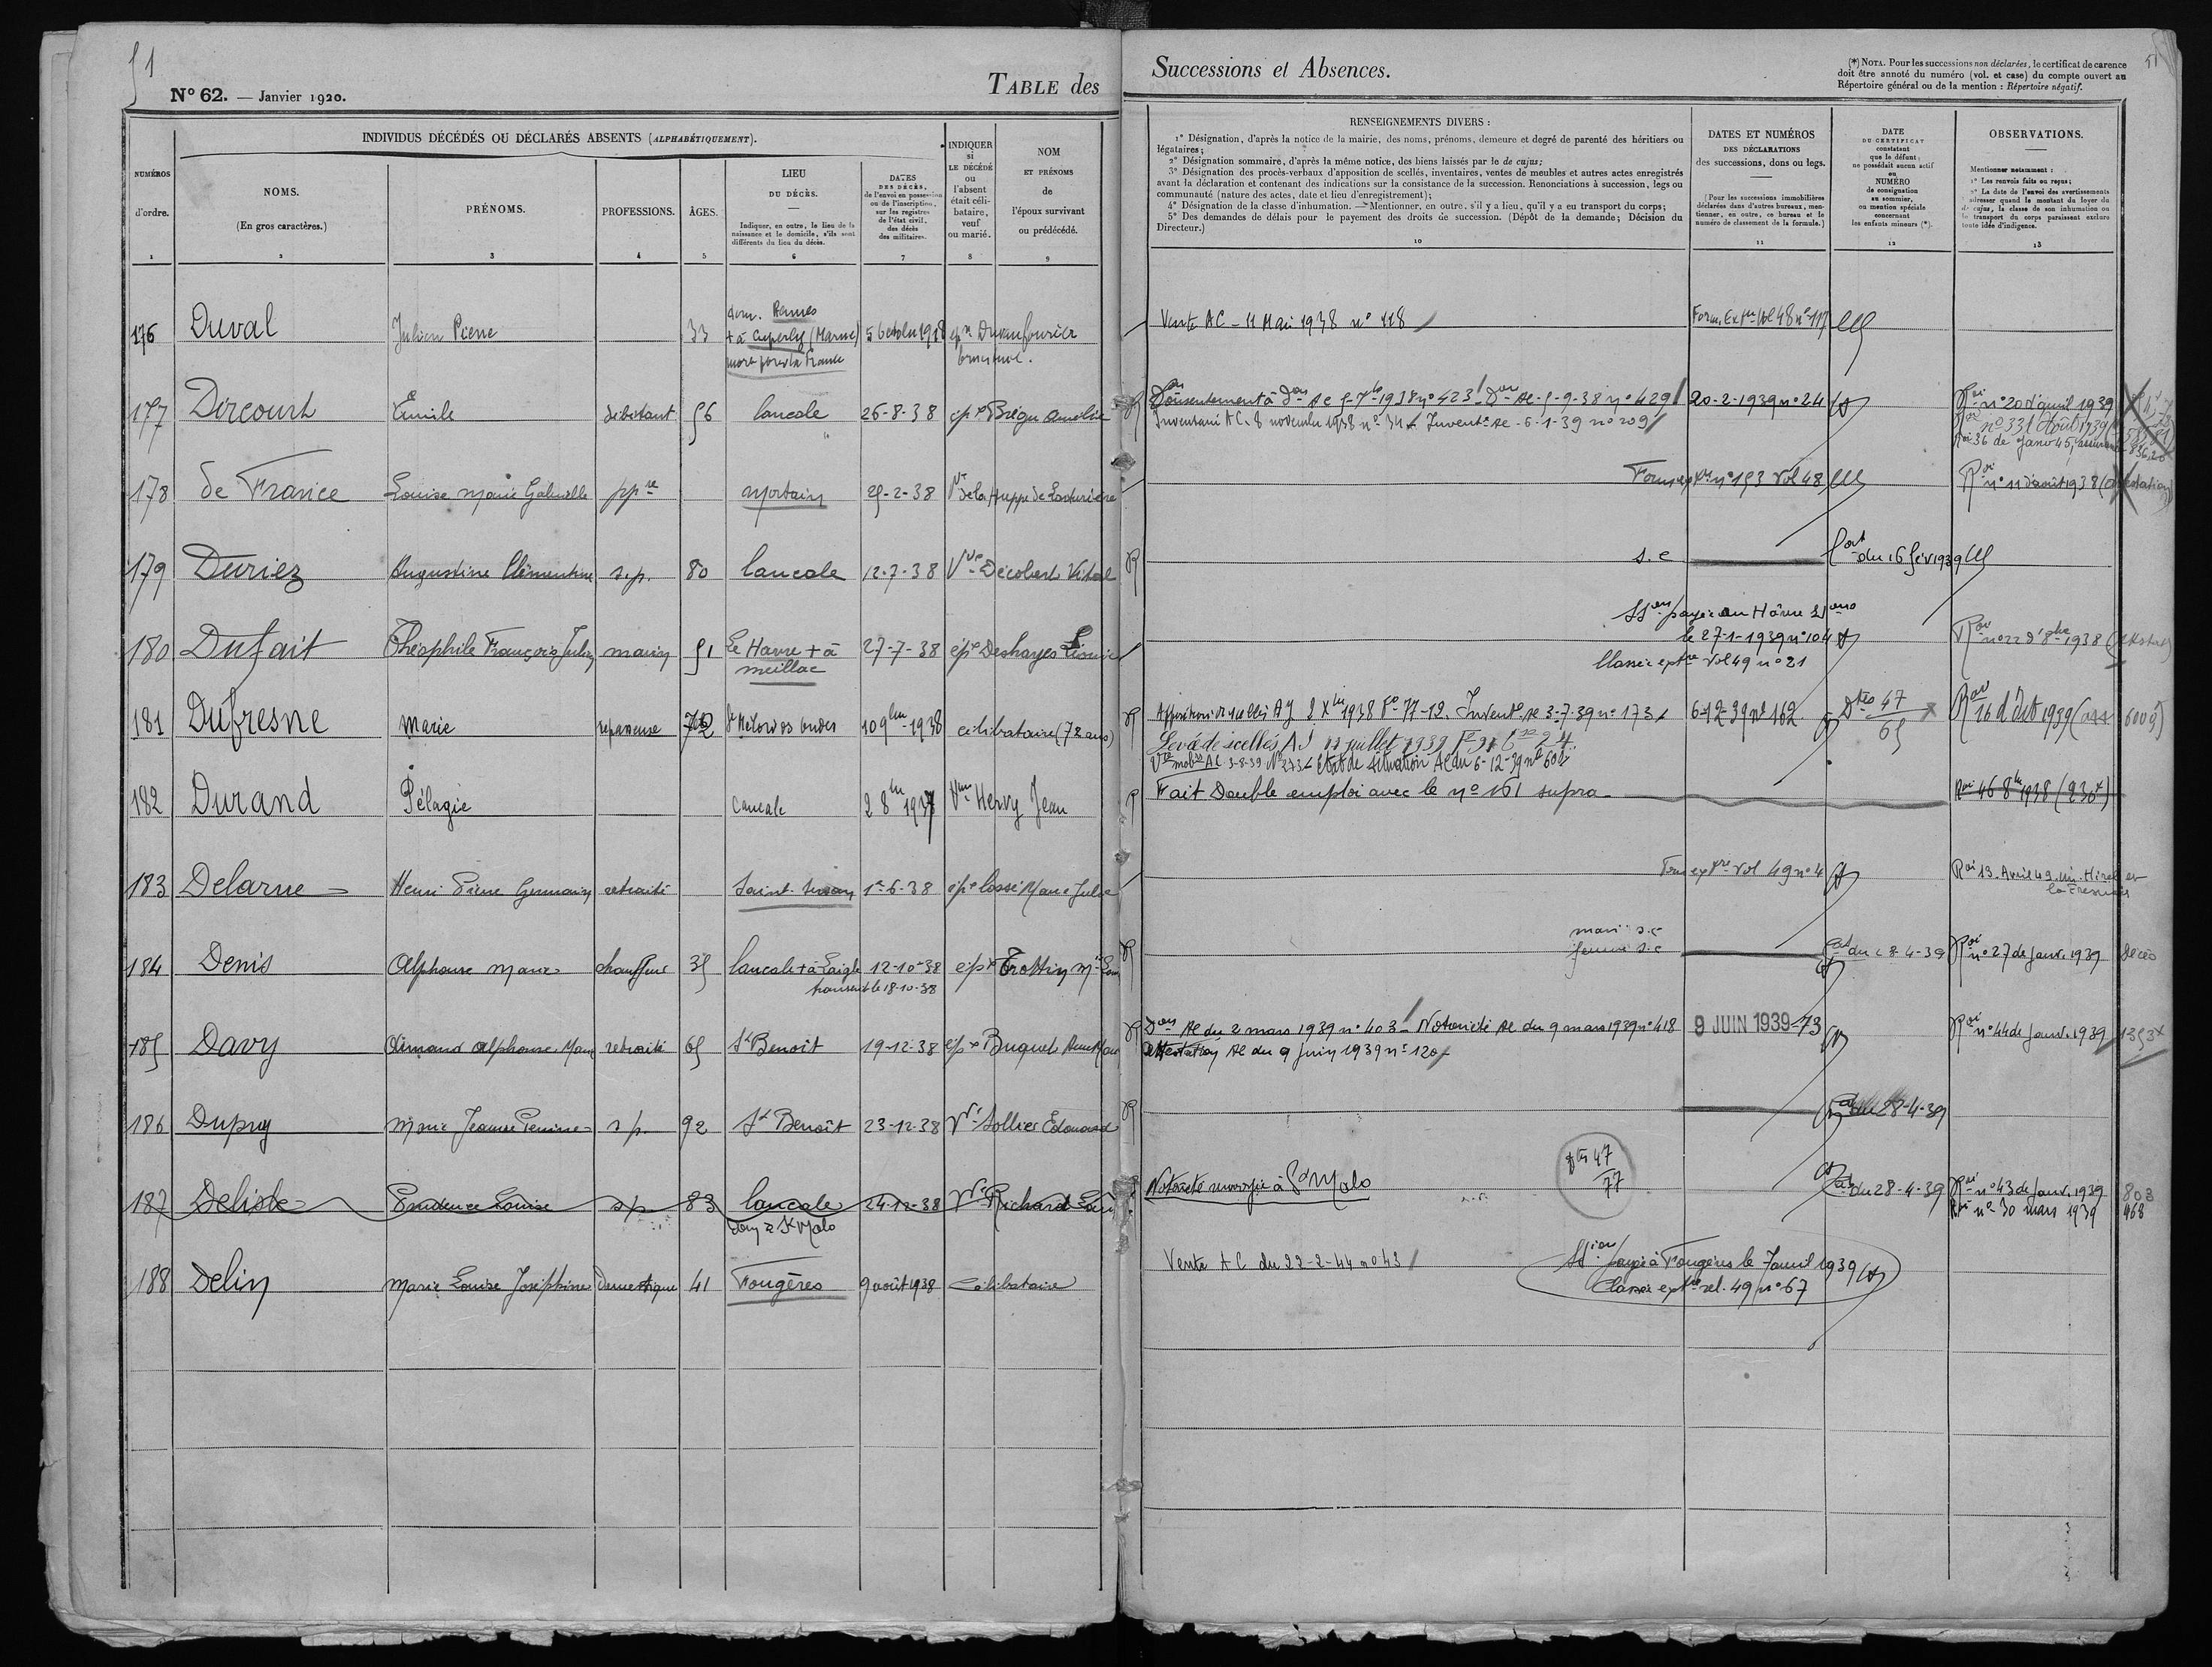 51
N° 62. — Janvier 1920.
TABLE des
Successions et Absences.
(*) NOTA. Pour les successions non déclarées, le certificat de carence
doit être annoté du numéro (vol. et case) du compte ouvert au
Répertoire général ou de la mention : Répertoire négatif.
51
NUMÉROS
d'ordre.
1
INDIVIDUS DÉCÉDÉS OU DÉCLARÉS ABSENTS (ALPHABÉTIQUEMENT).
NOMS.
(En gros caractères.)
2
PRÉNOMS.
3
PROFESSIONS.
4
ÂGES.
5
LIEU
DU DÉCÈS.
Indiquer, en outre, le lieu de la
naissance et le domicile, s'ils sont
différents du lieu du décès.
6
DATES
DES DÉCÈS,
de l'envoi en possession
ou de l'inscription,
sur les registres
de l'état civil,
des décès
des militaires.
7
INDIQUER
si
LE DÉCÉDÉ
ou
l'absent
était céli-
bataire,
veuf
ou marié.
8
NOM
ET PRÉNOMS
de
l'époux survivant
ou prédécédé.
9
RENSEIGNEMENTS DIVERS :
1° Désignation, d'après la notice de la mairie, des noms, prénoms, demeure et degré de parenté des héritiers ou
légataires;
2° Désignation sommaire, d'après la même notice, des biens laissés par le de cujus;
3° Désignation des procès-verbaux d'apposition de scellés, inventaires, ventes de meubles et autres actes enregistrés
avant la déclaration et contenant des indications sur la consistance de la succession. Renonciations à succession, legs ou
communauté (nature des actes, date et lieu d'enregistrement);
4° Désignation de la classe d'inhumation. — Mentionner, en outre, s'il y a lieu, qu'il y a eu transport du corps;
5° Des demandes de délais pour le payement des droits de succession. (Dépôt de la demande; Décision du
Directeur.)
10
DATES ET NUMÉROS
DES DÉCLARATIONS
des successions, dons ou legs.
(Pour les successions immobilières
déclarées dans d'autres bureaux, men-
tionner, en outre, ce bureau et le
numéro de classement de la formule.)
11
DATE
DU CERTIFICAT
constatant
que le défunt
ne possédait aucun actif
ou
NUMÉRO
de consignation
au sommier,
ou mention spéciale
concernant
les enfants mineurs (*).
12
OBSERVATIONS.
Mentionner notamment :
1° Les renvois faits ou reçus;
2° La date de l'envoi des avertissements
à adresser quand le montant du loyer du
de cujus, la classe de son inhumation ou
le transport du corps paraissent exclure
toute idée d'indigence.
13
176 Duval Julien Pierre 33 dom. Rennes
+ à Cuperly (Marne) 5 octobre 1918
mort pour la France
Vente AC - 11 Mai 1938 n° 118 Form. Extre Vol 48 n° 117
177 Dircourt Emile débitant 56 Cancale 26-8-38 épx
n° 423 n° 429 20-2-1939 n° 24
Inventaire AC. 8 novembre 1938 Invent. Ac - 6-1-39 n° 209
Roi n° 20 d'avril 1939
n° 33 Août 1939
178 de France Louise Marie Gabrielle ppre Mortain 25-2-38 Vve de la Huppe de Larturière
Form extre n° 193 Vol 48
Roi n° 11 d'août 1938
179 Duriez Augustine Clémentine s.p. 80 Cancale 12-7-38 Vve Décobert Vital
s.c Cat du 16 Fév 1939
180 Dufait Théophile François Julien marin 51 Le Havre + à
meillac 27-7-38 épx Deshayes Léonie
payée au Hâvre
le 27-1-1939 n° 104
Classée extre Vol 49 n° 21
Roi n° 22 d'8bre 1938
181 Dufresne Marie repasseuse 72 10 9bre 1938 célibataire (72 ans)
Apposition de scellés AJ 2 Xbre 1938 Invent. Ac 3-7-39 n° 173
Levée de scellés AJ 11 juillet 1939
Etat de situation Ac du 6-12-39 n° 600
6-12-39 n° 162
47
65
Roi 16 d'Oct 1939
182 Durand Pélagie Cancale 2 8bre 1937 Vve Hervy Jean
Fait Double emploi avec le n° 161 supra
Roi 46 8bre 1938 (230)
183 Delarue Henri Pierre Germain retraité Saint-Servan 1er-6-38 épx Cossé Marie Julie
Form extre Vol 49 n° 4
Roi 13 Avril 49
184 Denis Alphonse Marie chauffeur 35 Cancale + à Laigle 12-10-38 épx Trottin Mie
transcrit le 18-10-38
mari s.c
femme s.c
Cat du 28-4-39 Roi n° 27 de Janv. 1939 Décès
185 Davy Armand Alphonse Marie retraité 65 St Benoît 19-12-38 épx
Don Ac du 2 mars 1939 n° 403 - Notoriété Ac du 9 mars 1939 n° 418 9 JUIN 1939 - 73
Attestation Ac du 9 Juin 1939 n° 120
Roi n° 44 de Janv. 1939 1353
186 Dupuy Marie Jeanne Perrine s.p. 92 St Benoît 23-12-38 Vve Sollier Edouard
Cat du 28-4-39
187 Delisle Prudence Louise s.p. 83 Cancale 24-12-38 Vve Richard
Dom à St Malo
Notoriété renvoyée à St Malo
47
77
Cat du 28-4-39 Roi n° 43 de Janv. 1939 803
Roi n° 30 mars 1939 468
188 Delin Marie Louise Joséphine Domestique 41 Fougères 9 août 1938 Célibataire
Vente AC du 22-2-44 n° 43
payée à Fougères le 7 avril 1939
Classée extre vol. 49 n° 67